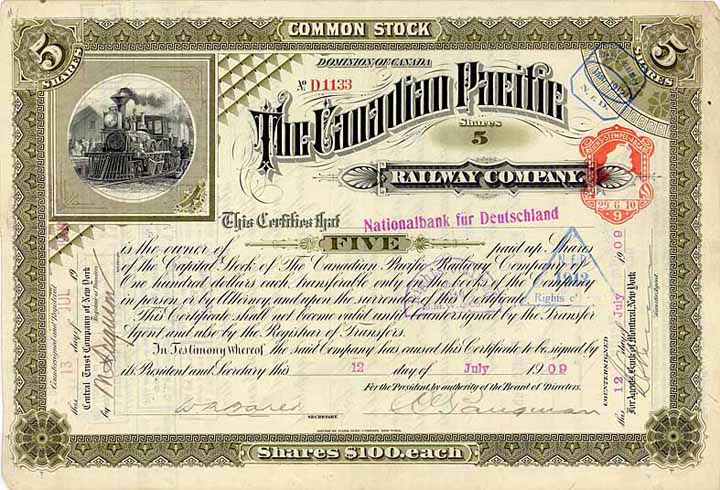 COMMON STOCK
5
SHARES
5
SHARES
DOMINION OF CANADA
No. D1133
The Canadian Pacific
Shares
5
RAILWAY COMPANY.
29 6 10
9
This Certifies that Nationalbank für Deutschland
is the owner of FIVE paid up Shares
of the Capital Stock of The Canadian Pacific Railway Company of
One hundred dollars each, transferable only on the books of the Company
in person or by Attorney and upon the surrender of this Certificate.
This Certificate shall not become valid until countersigned by the Transfer
Agent and also by the Registrar of Transfers.
In Testimony Whereof the said Company has caused this Certificate to be signed by
its President and Secretary this 12 day of July 1909
For the President, by authority of the Board of Directors.
SECRETARY.
1912
Rights
Countersigned and Registered
this 13 day of JUL 19
Central Trust Company of New York
by
COUNTERSIGNED
this 12 day of July 1909
For Agents, Bank of Montreal, New York
5
SHARES
Shares $100. each
5
SHARES